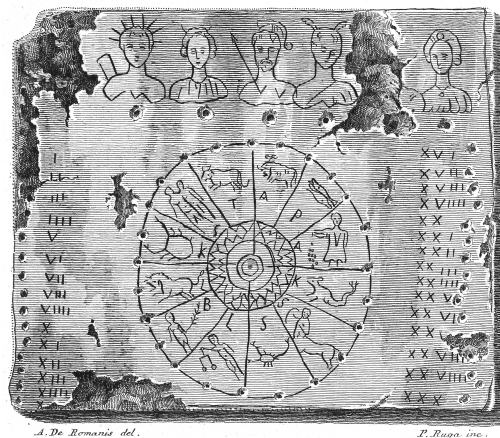 I
III
IIII
V
VI
VII
VIII
VIIII
X
XI
XII
XIII
XIIII
T
A
P
A
K
S
L
B
K
XVI
XVII
XVIII
XVIIII
XX
XXI
XXII
XXIII
XXIIII
XXV
XXVI
XXVIII
XXVIIII
XXX
A. De Romanis del.
P. Ruga inc.